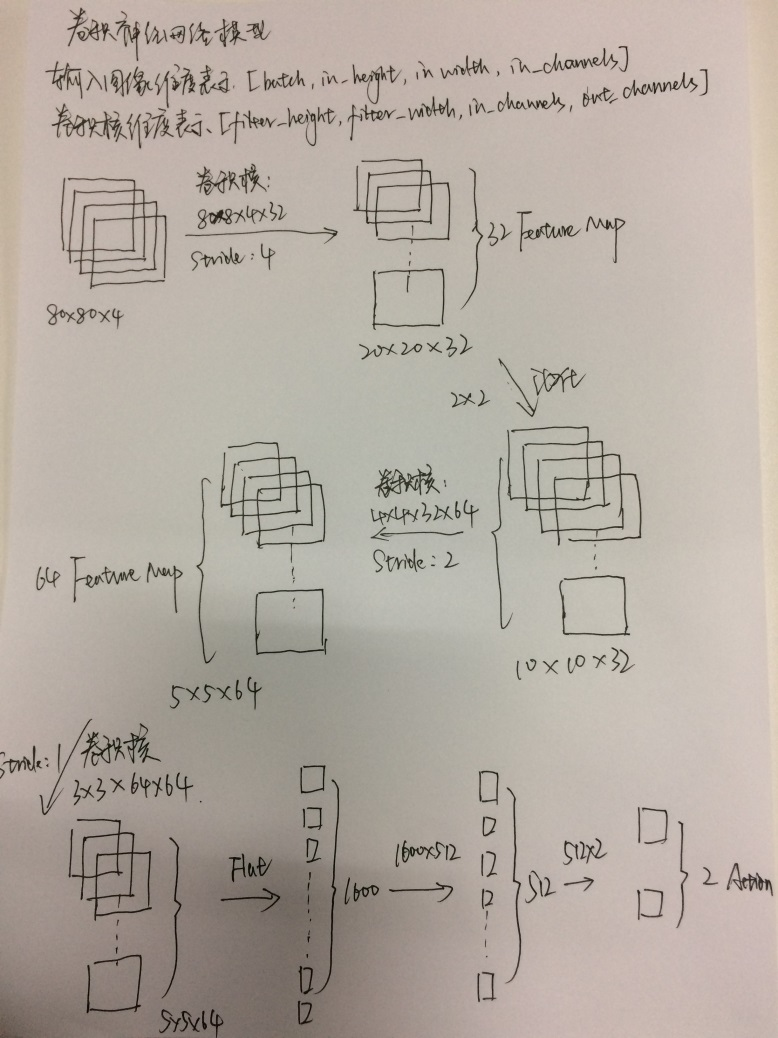 卷积神经网络模型
输入图像维度表示. [batch, in_height, in width, in_channels]
卷积核维度表示. [filter_height, filter_width, in_channels, out_channels]
卷积核:
8x8x4x32
Stride: 4
80x80x4
32 Feature Map
20x20x32
2x2
池化
卷积核:
4x4x32x64
Stride: 2
64 Feature Map
10x10x32
5x5x64
Stride: 1
卷积核
3x3x64x64.
Flat
1600
1600x512
512
512x2
2 Action
5x5x64